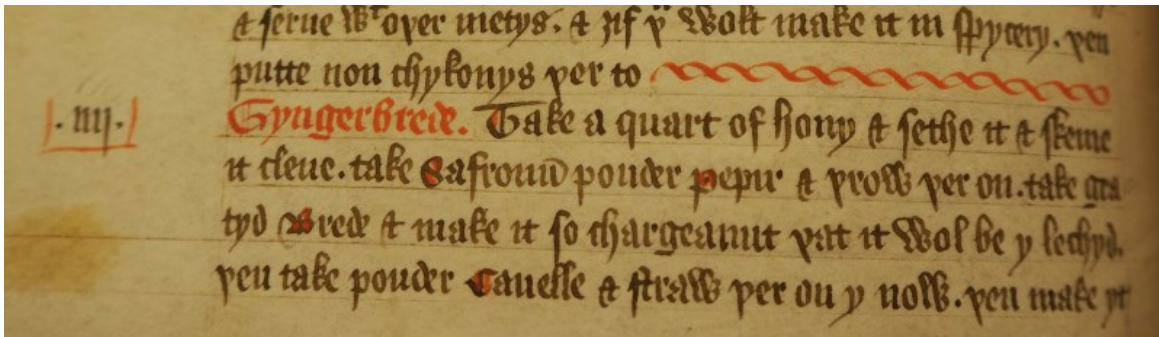 & serue wᵗ oþer metys. & ȝif þᵘ wolt make it in spycery. þen
putte non chykonys þer to
.iiij. Gyngerbrede. Take a quart of hony & sethe it & skeme
it clene. take Safroun pouder pepir & þrow þer on. take gra
tyd Brede & make it so chargeaunt þat it wol be y lechyd.
þen take pouder Canelle & straw þer on y now. þen make yt